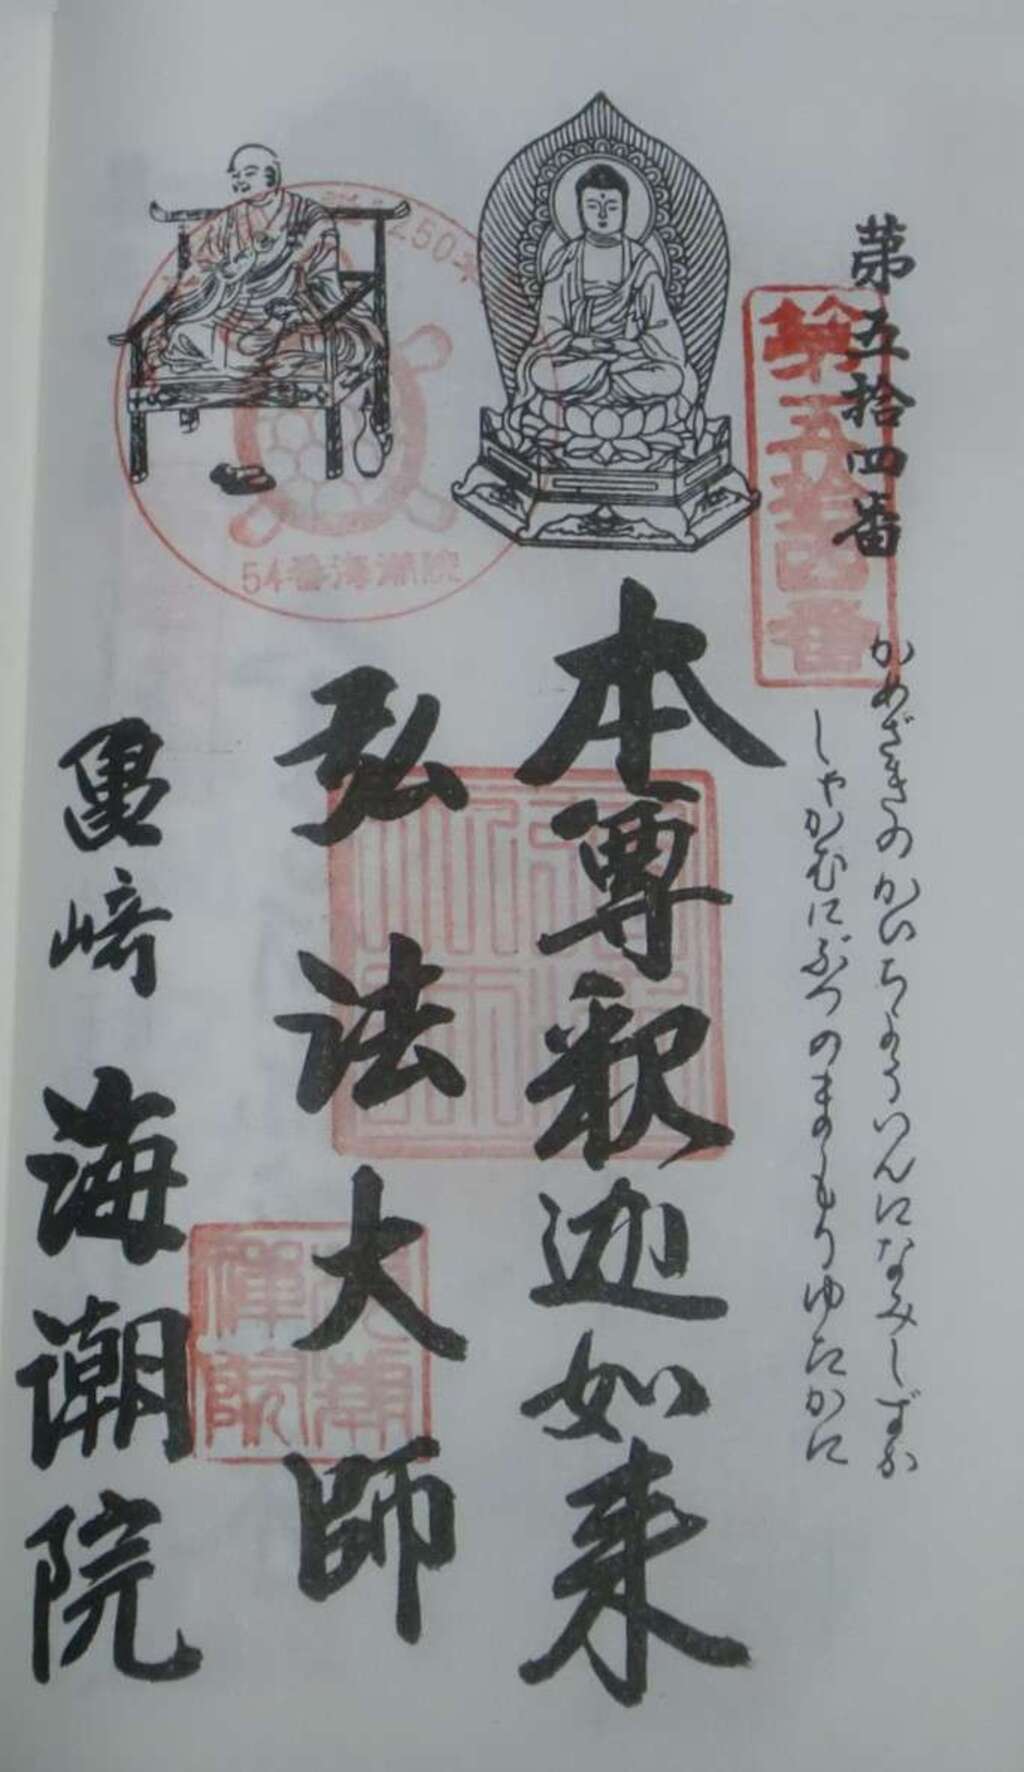 第五拾四番
第五拾四番
かめざきのかいちょういんになみしずか
しゃかむにぶつのまもりゆたかに
本尊釈迦如来
弘法大師
亀﨑 海潮院
250年
54番海潮院